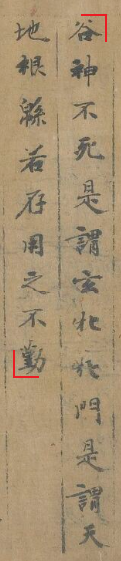 谷神不死是謂玄牝牝門是謂天
地根緜若存用之不勤